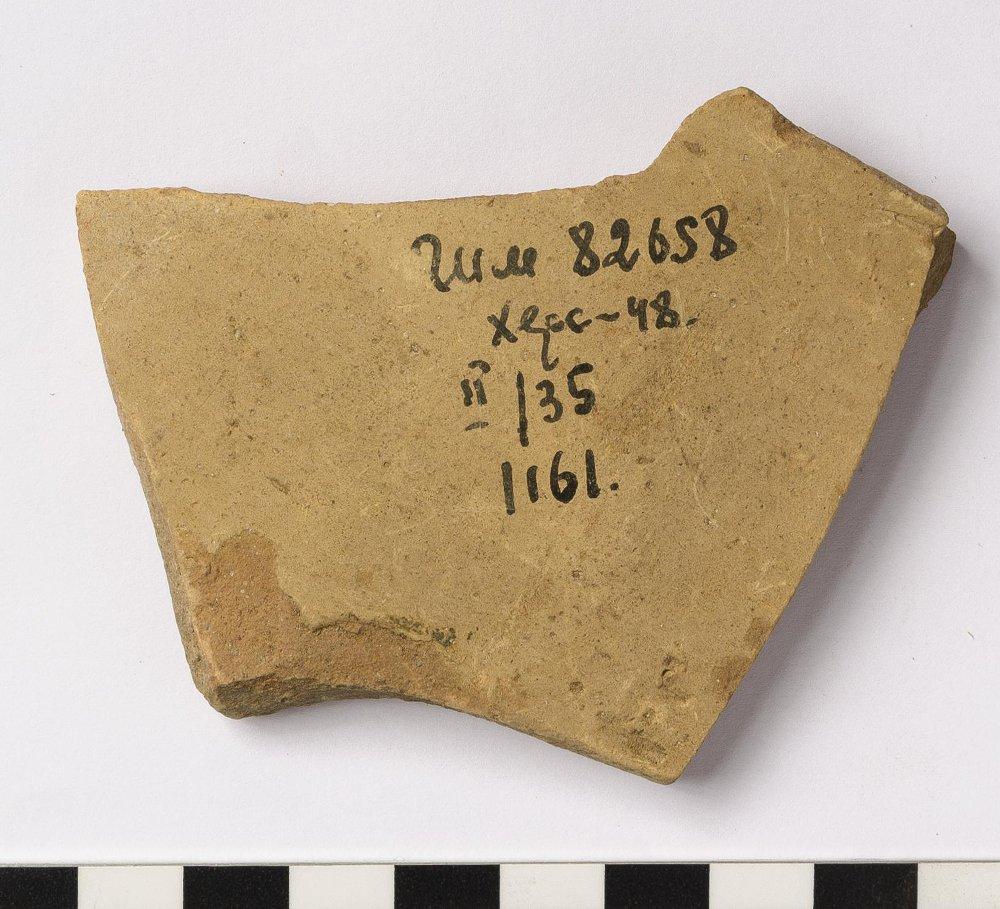 ГИМ 82658
Херс-48.
II/35
1161.